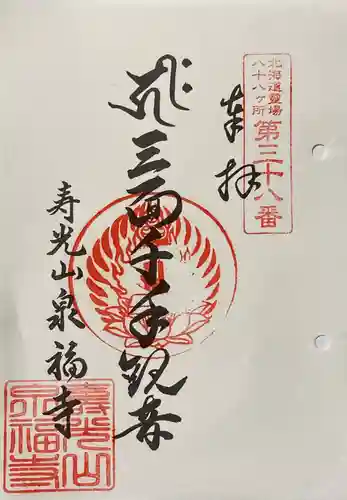 北海道霊場
八十八ヶ所
第三十八番
奉拝
三面千手観音
寿光山泉福寺
寿光山
泉福寺